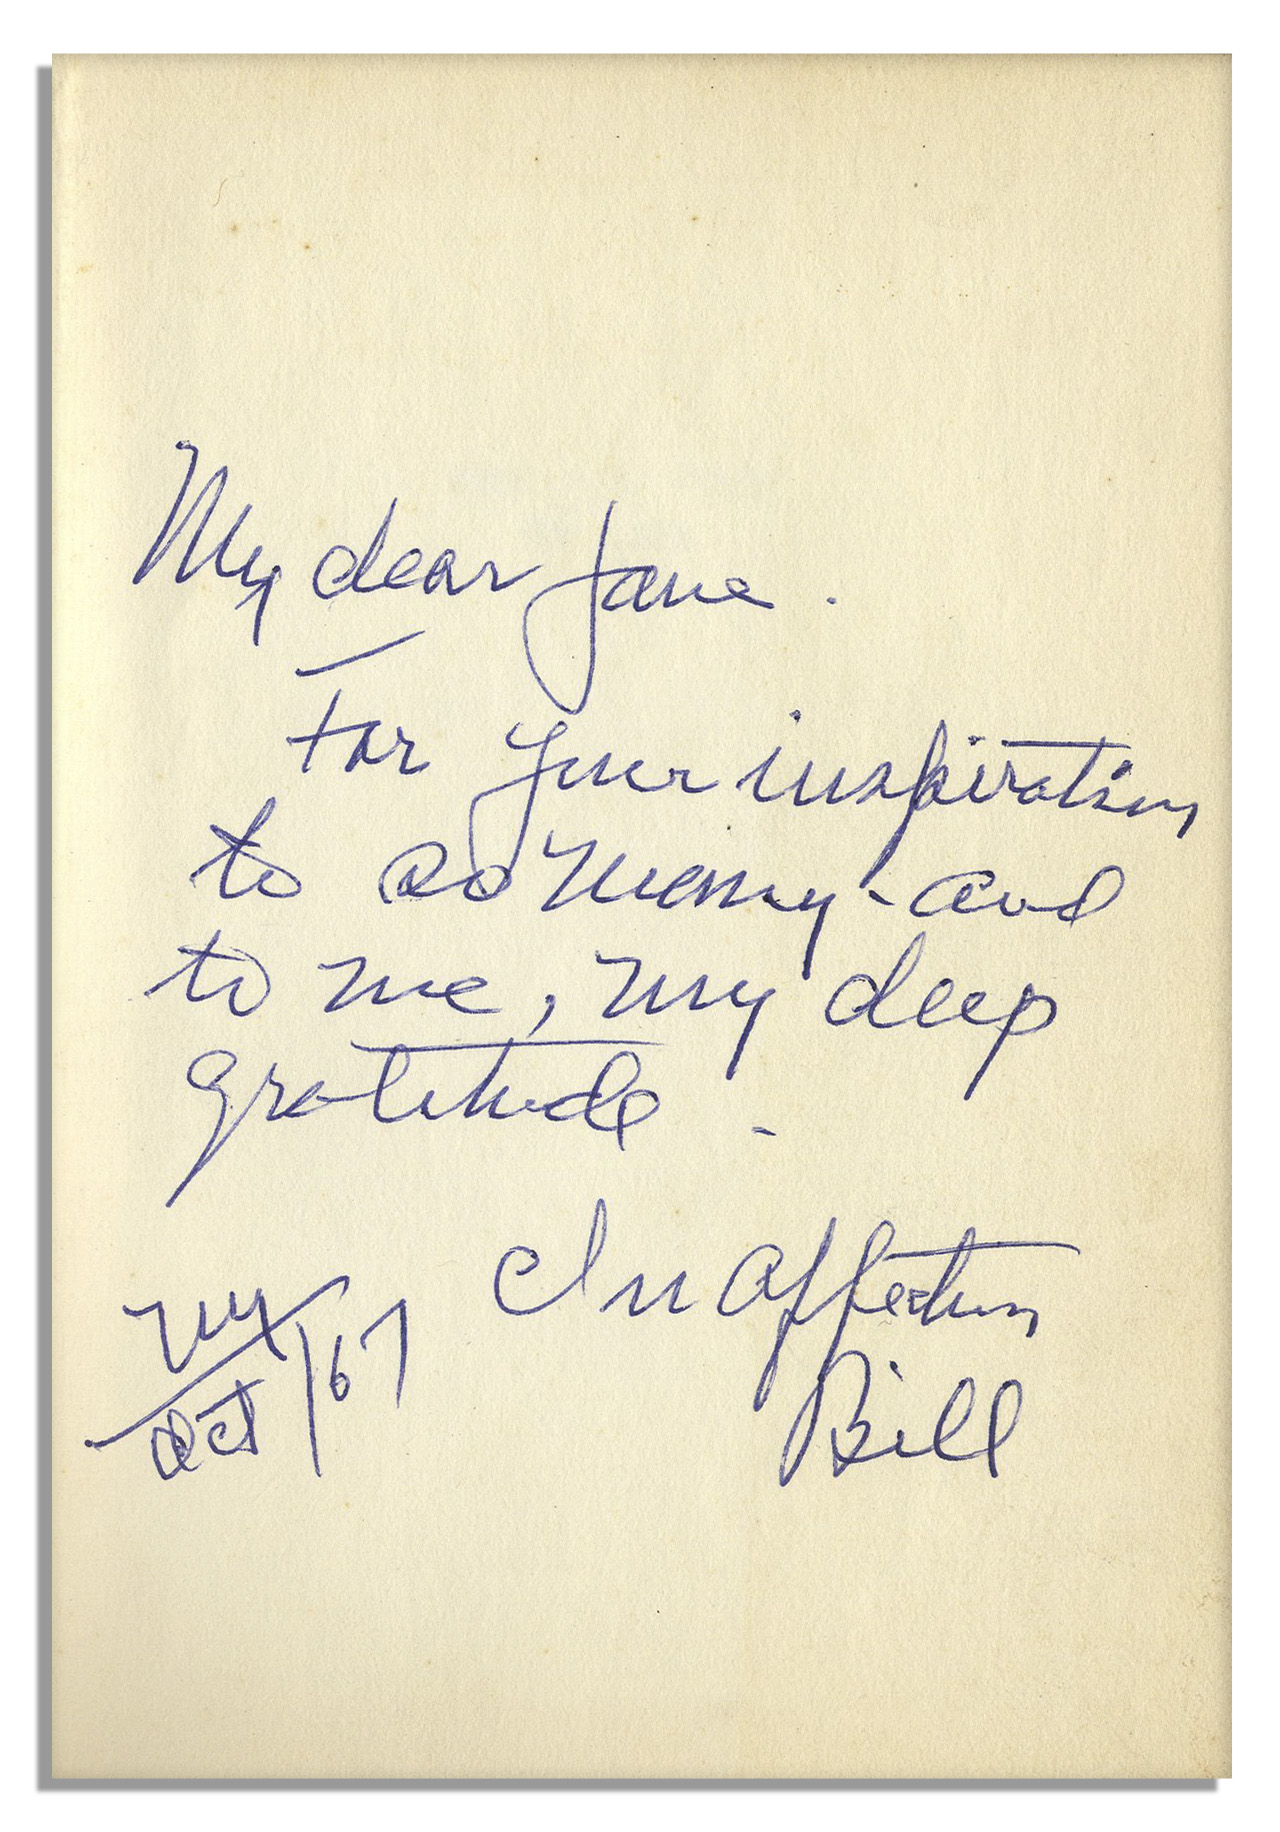 My dear Jane.
For your inspiration
to so many - and
to me, my deep
gratitude -
In affection
Bill
NY
Oct /67